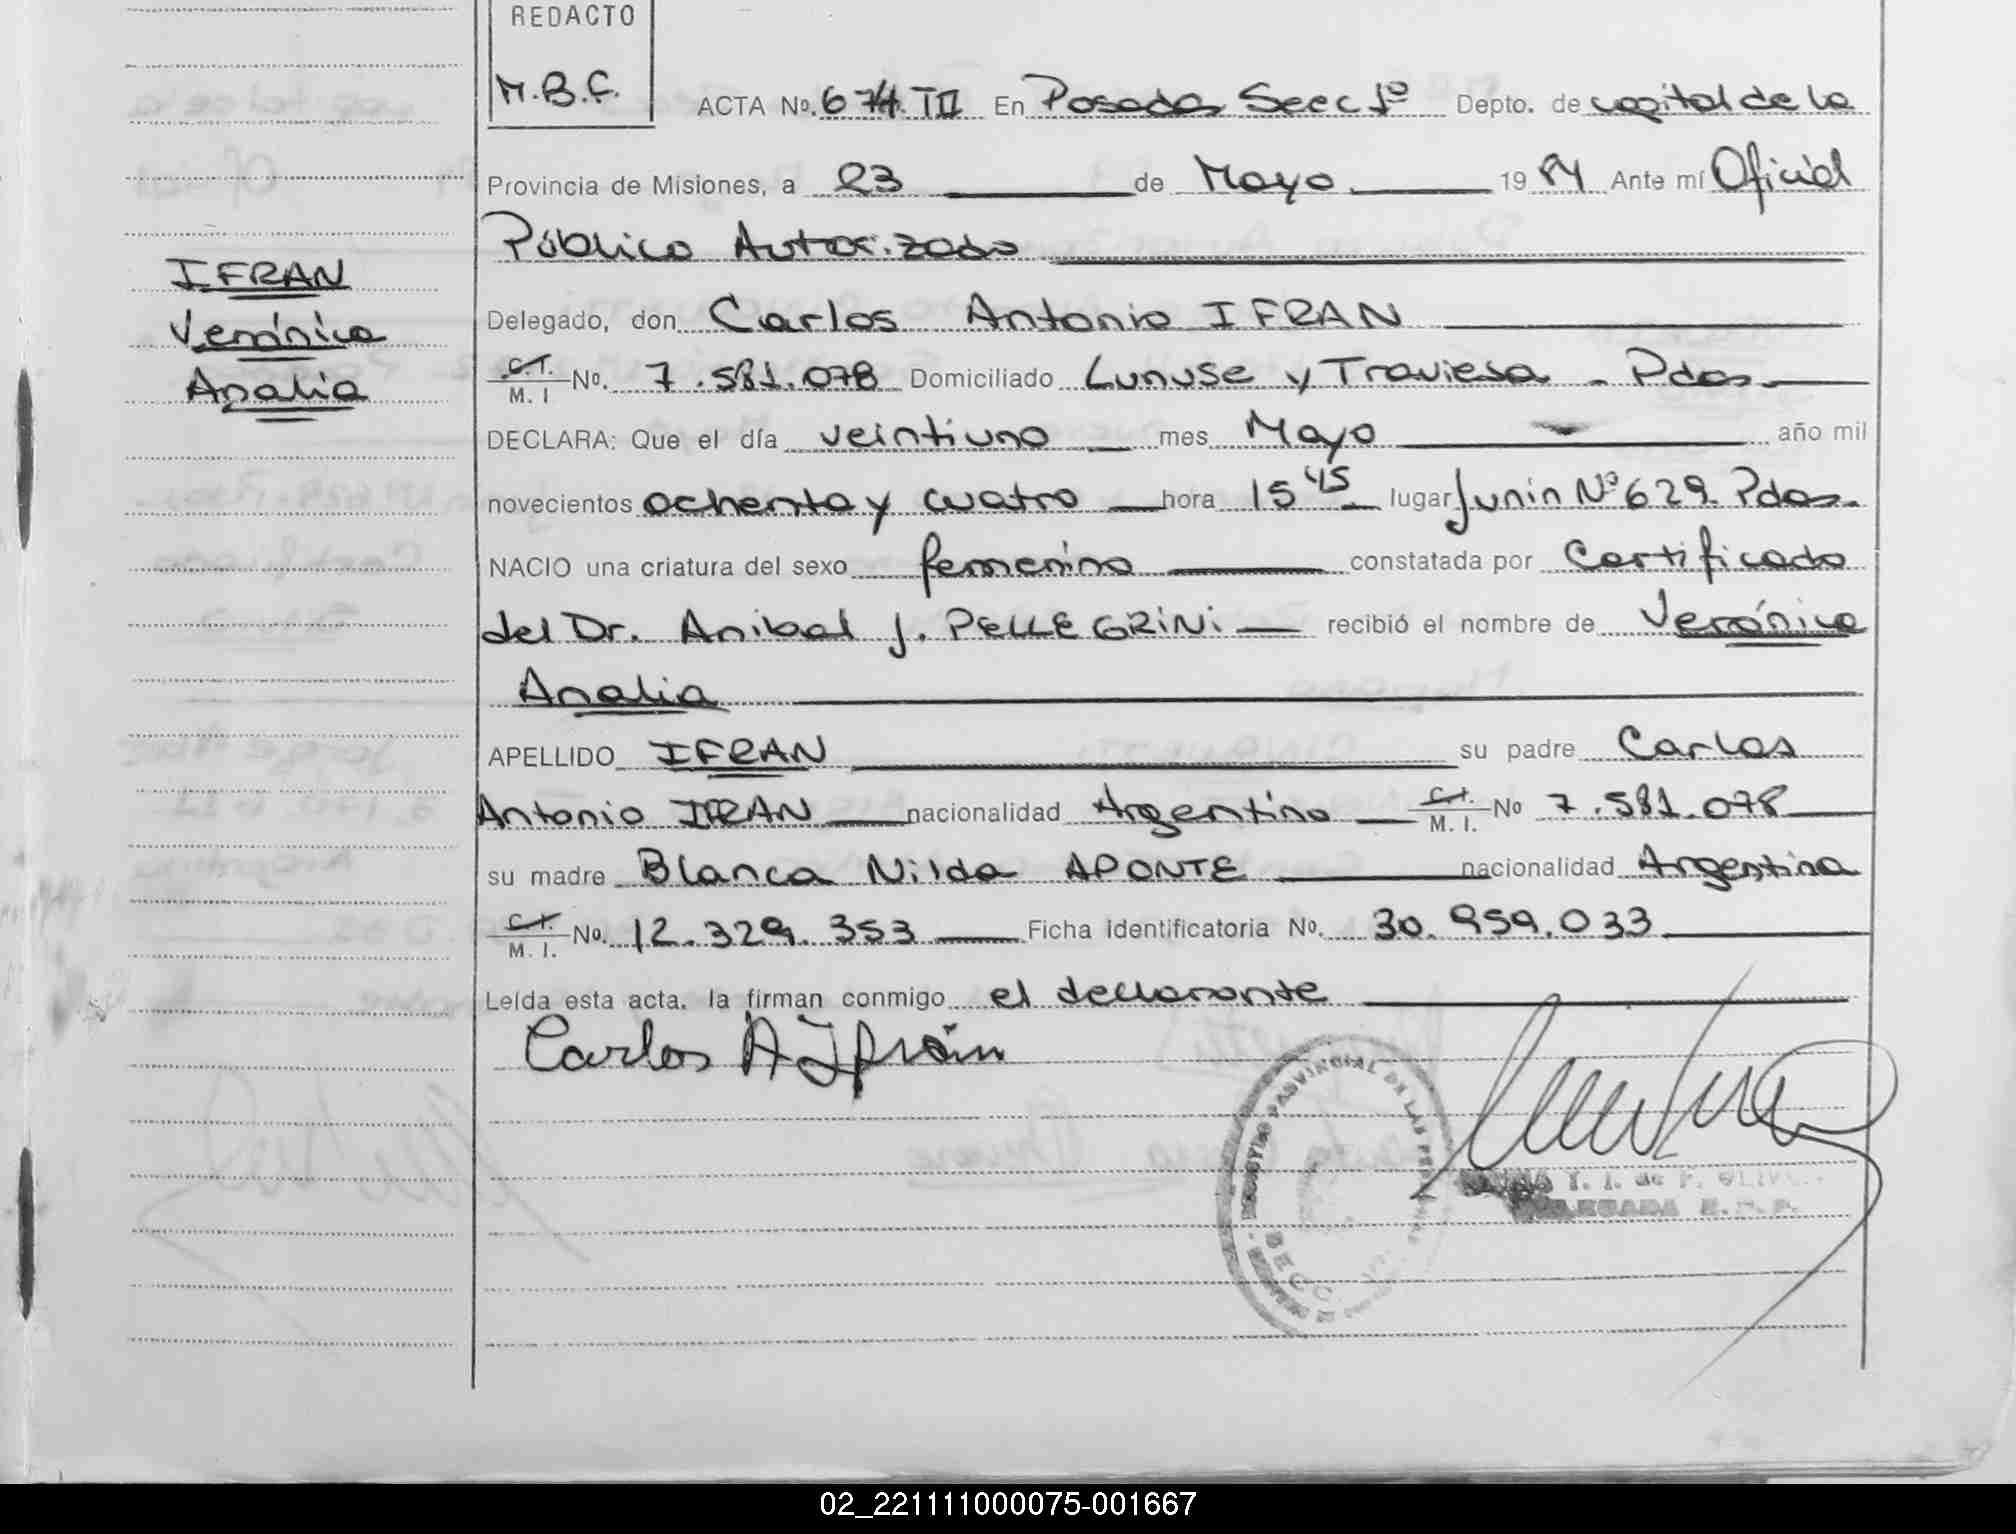 REDACTO
M.B.F.
ACTA No. 674. TII En Posadas Secc 1º Depto. de capital de la
Provincia de Misiones, a 23 de Mayo 19 84 Ante mí Oficial
Público Autorizado
IFRAN
Verónica
Analia
Delegado, don Carlos Antonio IFRAN
C.I. M. I No. 7.581.078 Domiciliado Lunuse y Traviesa - Pdas.
DECLARA: Que el día veintiuno mes Mayo año mil
novecientos ochenta y cuatro hora 15 45 lugar Junin Nº 629. Pdas.
NACIO una criatura del sexo femenino constatada por Certificado
del Dr. Anibal J. PELLEGRINI recibió el nombre de Verónica
Analia
APELLIDO IFRAN su padre Carlos
Antonio IFRAN nacionalidad Argentino C.I. M. I. No 7.581.078
su madre Blanca Nilda APONTE nacionalidad Argentina
C.I. M. I. No. 12.329.353 Ficha identificatoria No. 30.959.033
Leída esta acta. la firman conmigo el declarante
Carlos A Ifrán
PROVINCIAL DE LAS
SECC
Y. I. de F.
DELEGADA R.P.P.
02_221111000075-001667